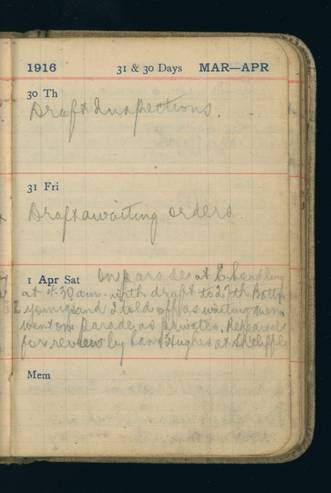 1916 31 & 30 Days MAR—APR
30 Th
Draft Inspections.
31 Fri
Draft awaiting orders
1 Apr Sat On parade at
at 4-30 am with draft to 27th Battn
and I told off as waiting men
went on Parade as Privates. Rehearsal
for review by Hughes at
Mem